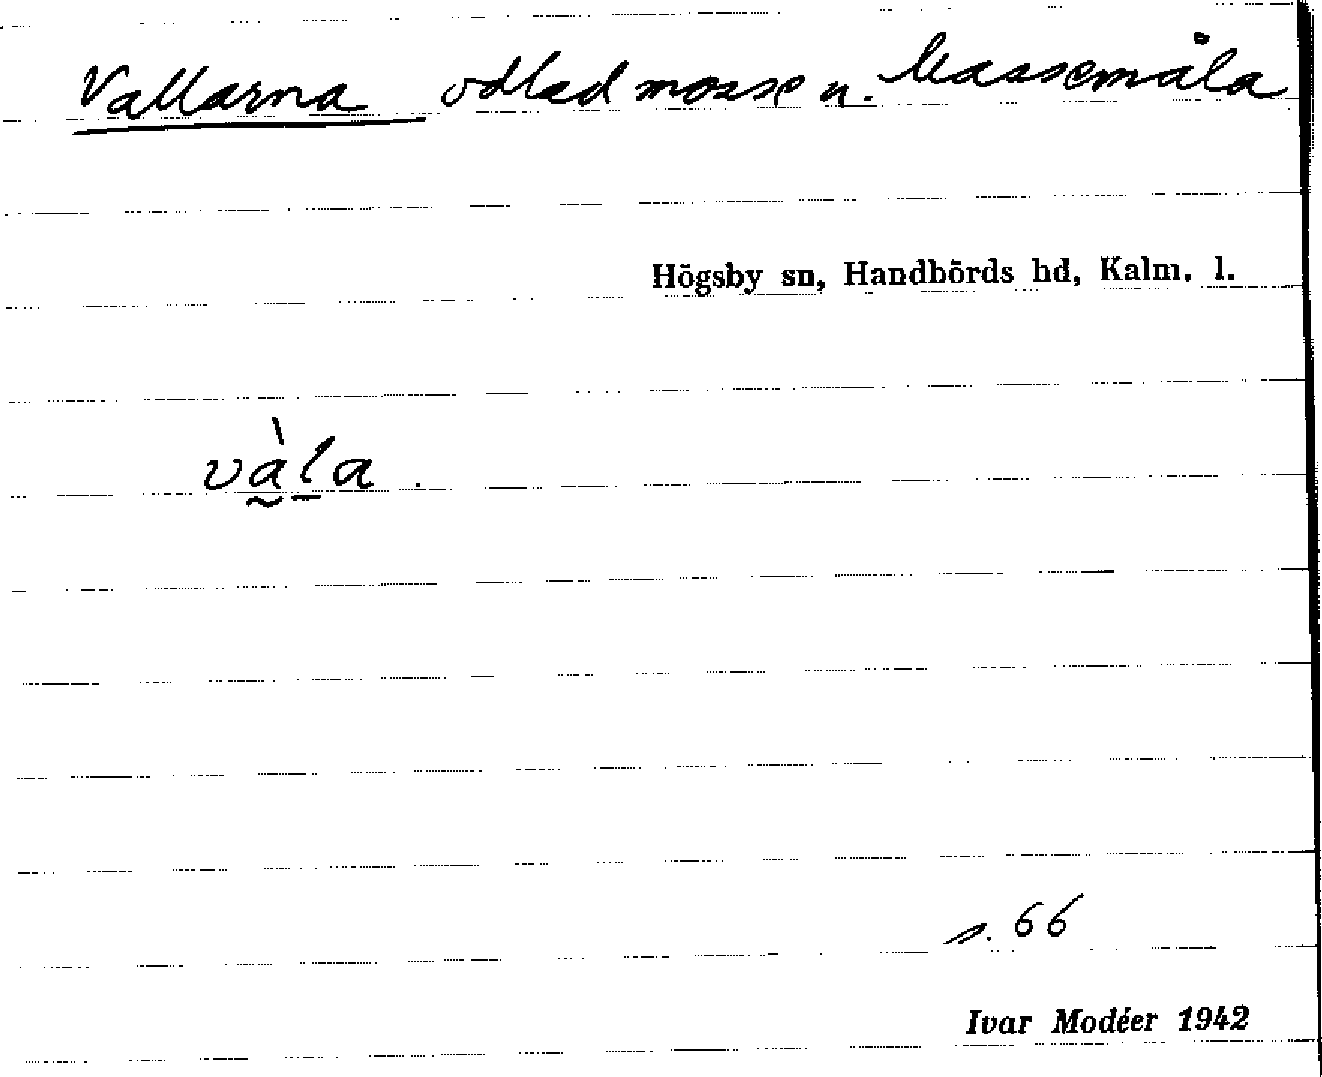 Vallarna odlad mosse u. Massemåla
Högsby sn, Handbörds hd, Kalm. l.
và̰l̲a.
s. 66
Ivar Modéer 1942